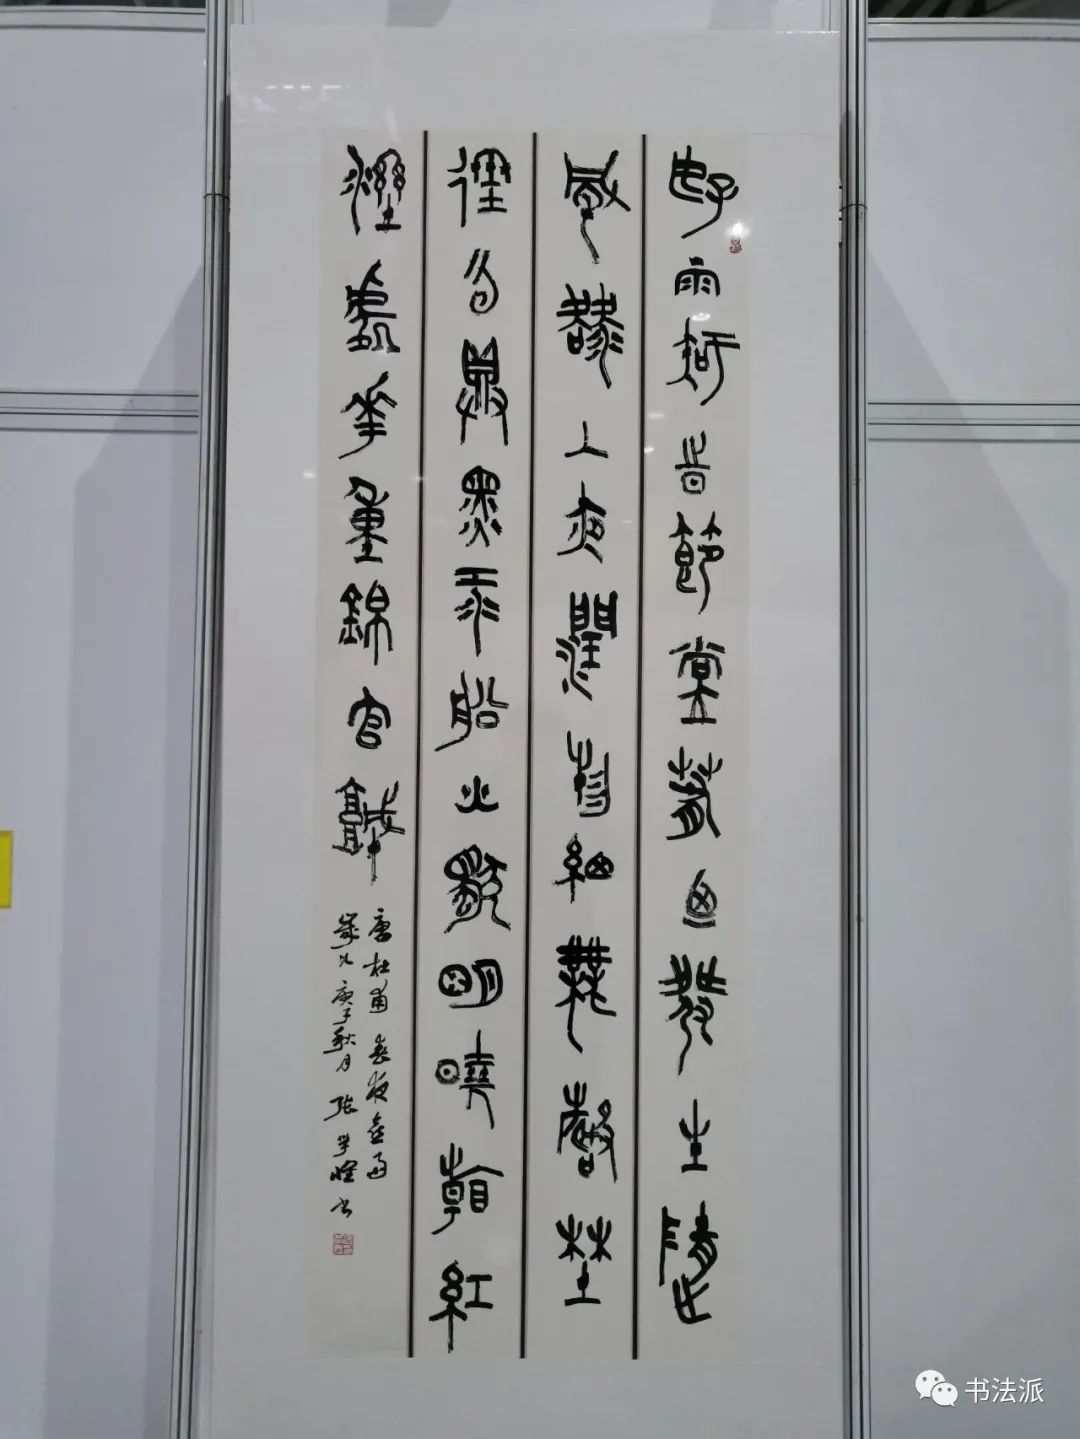 好雨知時節當春乃發生隨
風潛入夜潤物細無聲野
徑雲俱黑江船火獨明曉看紅
濕處花重錦官城
唐杜甫春夜喜雨
歲次庚子秋月 张书
书法派